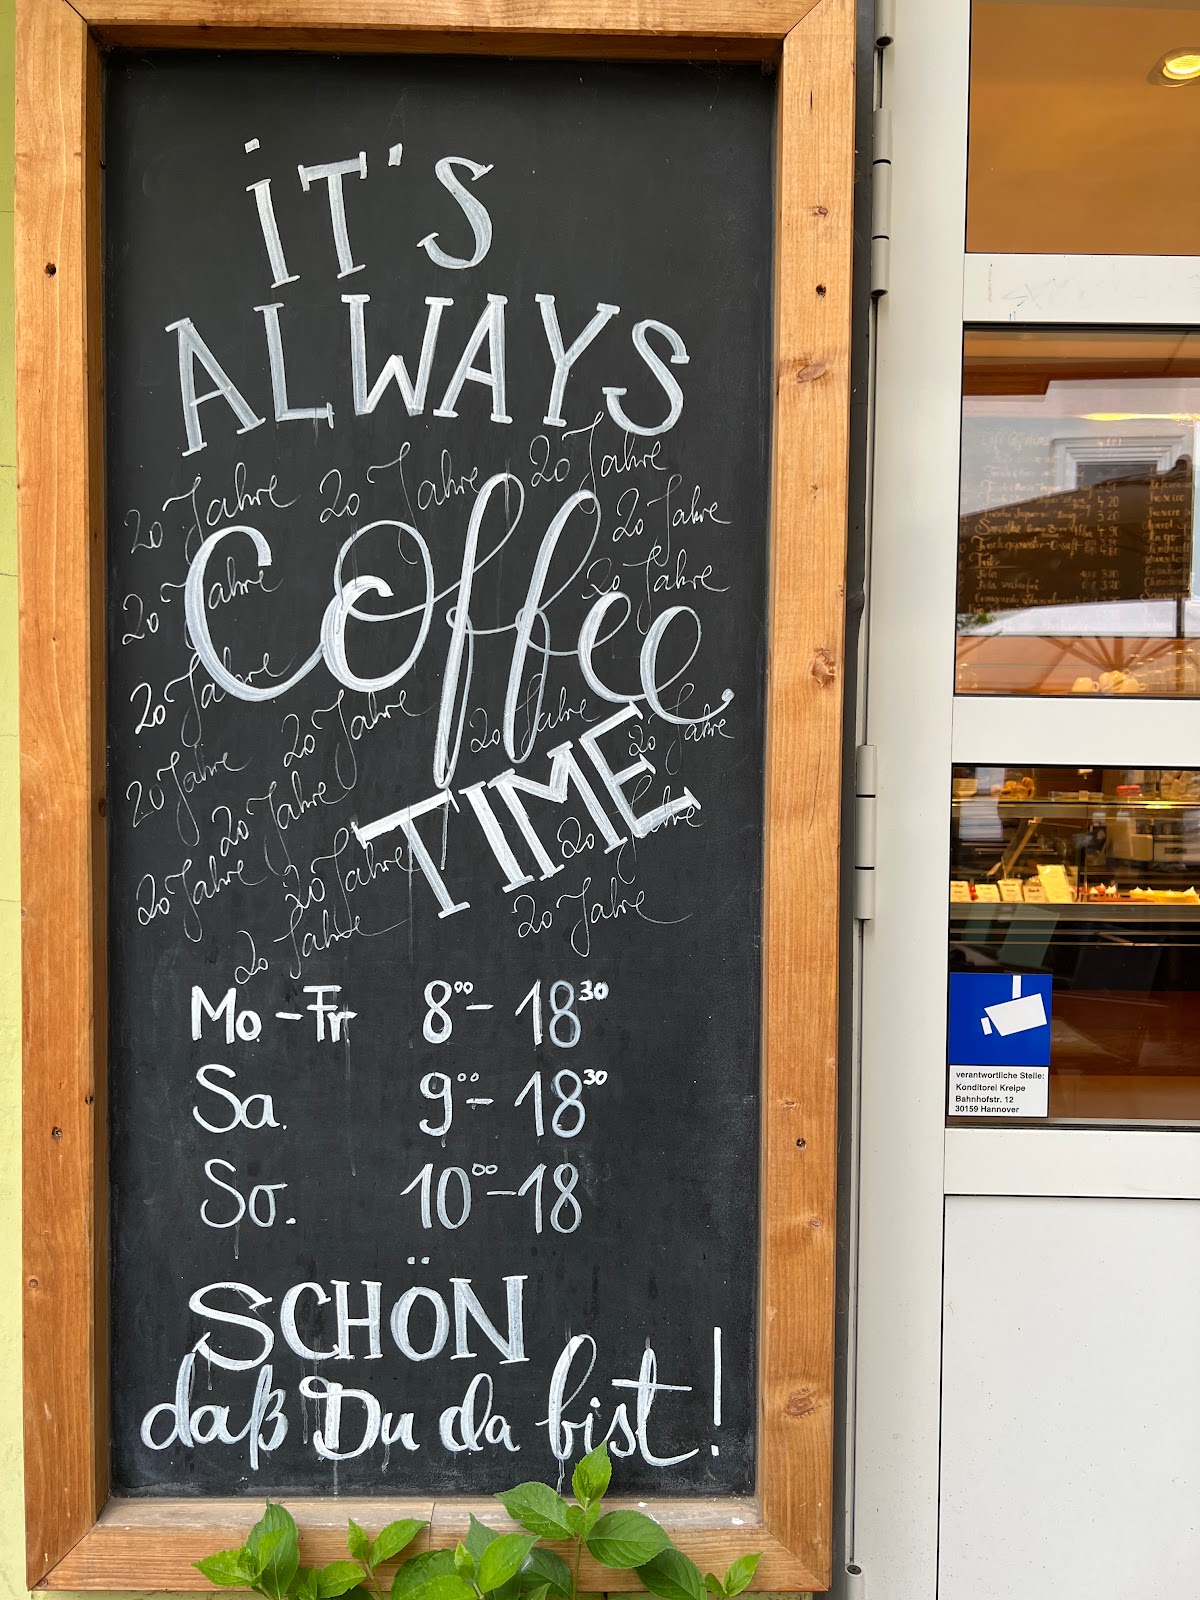 iT'S
ALWAYS
20 Jahre 20 Jahre 20 Jahre
20 Jahre
Coffee
20 Jahre 20 Jahre
20 Jahre 20 Jahre 20 Jahre 20 Jahre
TIME
20 Jahre 20 Jahre 20 Jahre
20 Jahre 20 Jahre
20 Jahre 20 Jahre
Mo - Fr 8⁰⁰ - 18³⁰
Sa. 9⁰⁰ - 18³⁰
So. 10⁰⁰ - 18
SCHÖN
daß Du da bist!
verantwortliche Stelle:
Konditorei Kreipe
Bahnhofstr. 12
30159 Hannover